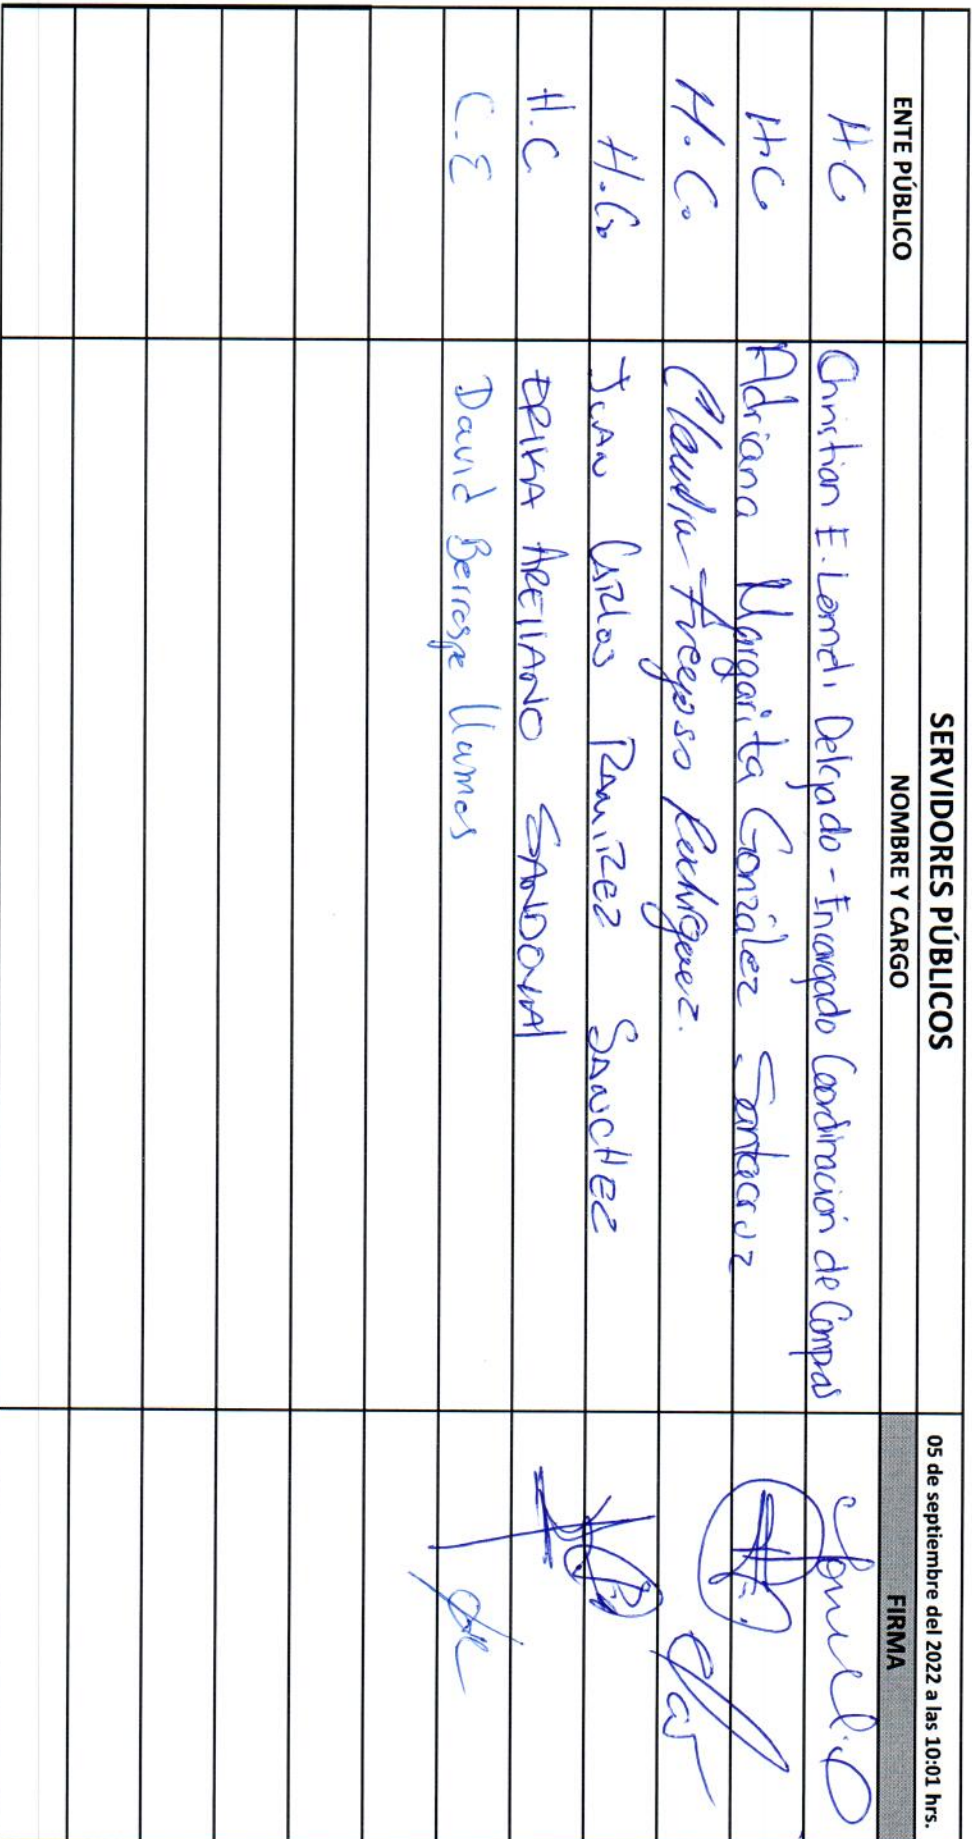 SERVIDORES PÚBLICOS
05 de septiembre del 2022 a las 10:01 hrs.
ENTE PÚBLICO NOMBRE Y CARGO FIRMA
HC Christian E. Lomeli Delgado - Encargado Coordinación de Compras
H.C Adriana Margarita González Santacruz
H.C. Claudia Rodriguez.
H.C. JUAN CARLOS RAMIREZ SANCHEZ
H.C ERIKA AREllANO SANDOVAl
C.E David Berrospe Llamas